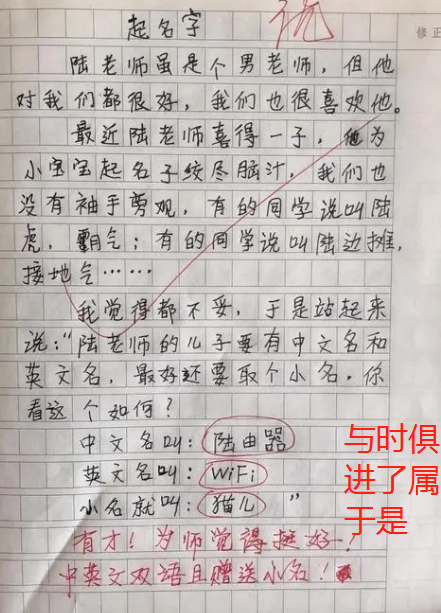 起名字
阅
修正
陆老师虽是个男老师，但他
对我们都很好，我们也很喜欢他。
最近陆老师喜得一子，他为
小宝宝起名子绞尽脑汁，我们也
没有袖手剪观，有的同学说叫陆
虎，霸气；有的同学说叫陆边摊，
接地气……
我觉得都不妥，于是站起来
说：“陆老师的儿子要有中文名和
英文名，最好还要取个小名．你
看这个如何？
中文名叫：陆由器
英文名叫：WiFi
小名就叫：猫儿”
与时俱
进了属
于是
有才！为师觉得挺好！
中英文双语且赠送小名！